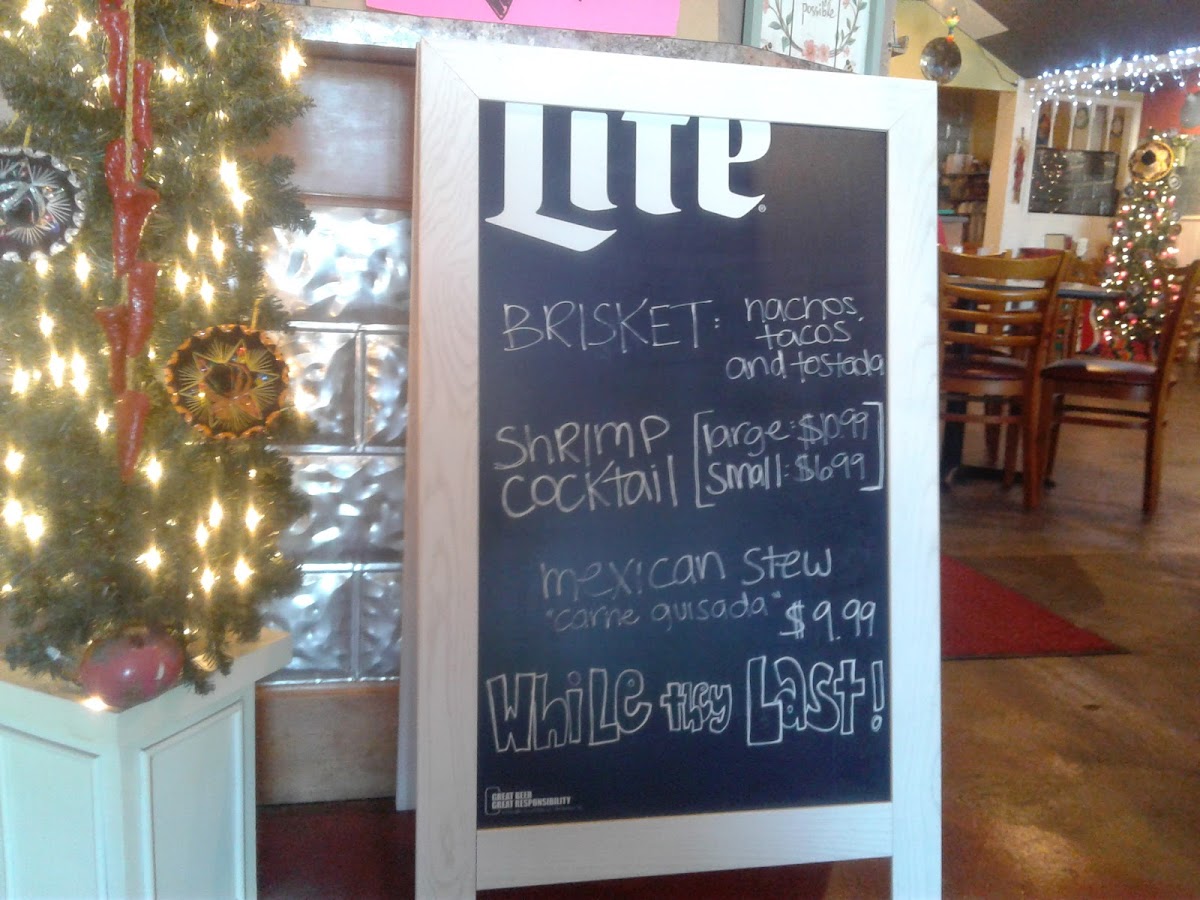 possible
Lite®
BRISKET: nachos,
tacos
and tostada
Shrimp [large: $10.99]
cocktail [small: $6.99]
mexican stew
"carne guisada"
$9.99
While they Last!
GREAT BEER
GREAT RESPONSIBILITY